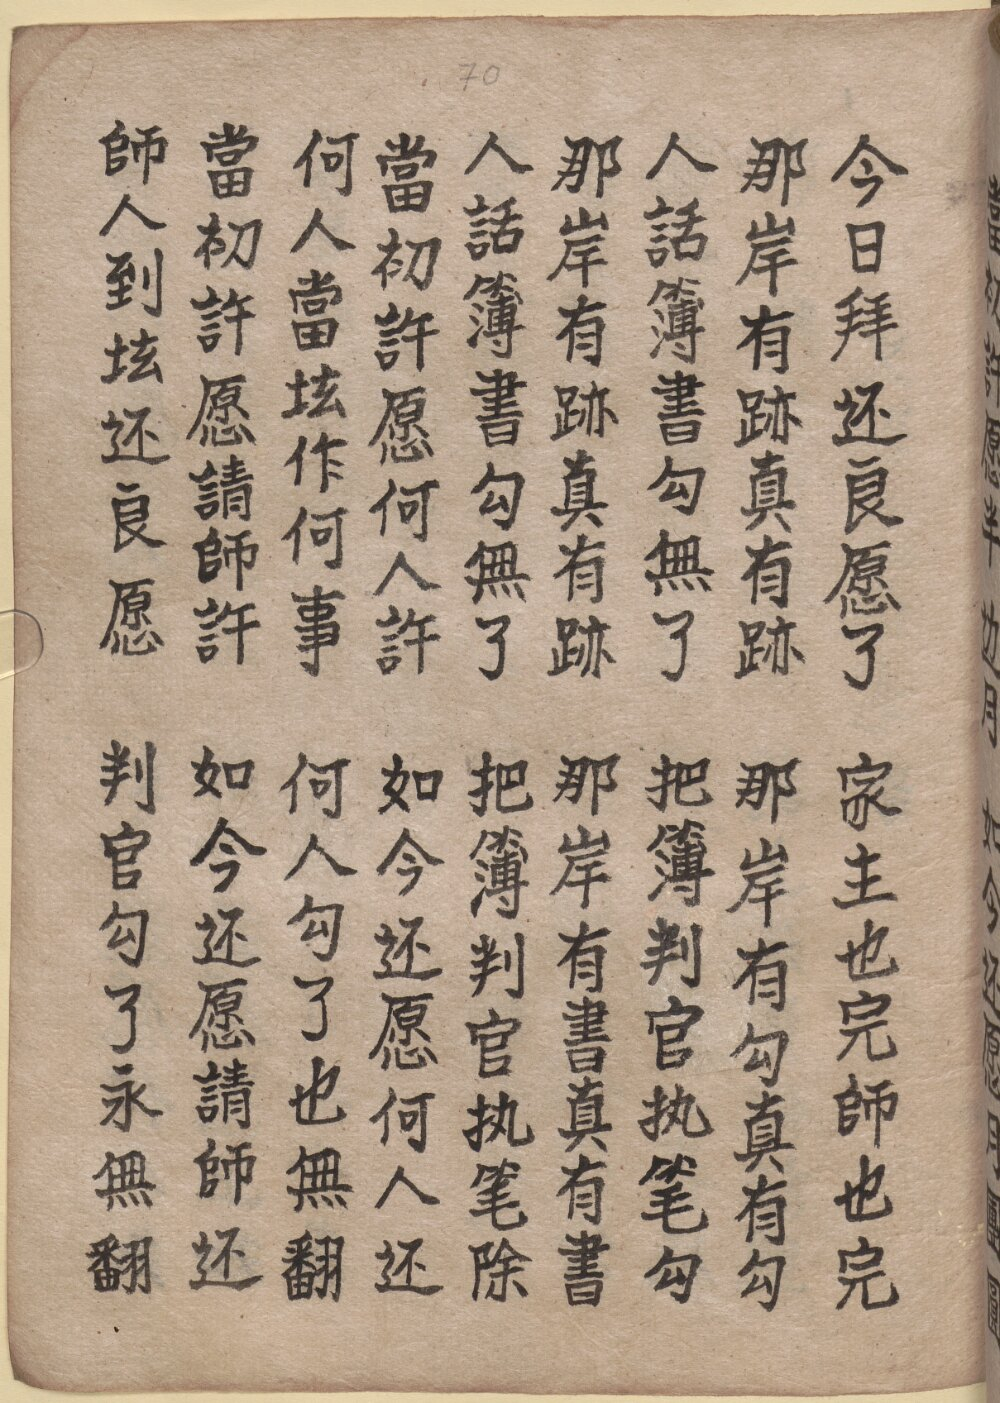 70
今日拜还良愿了 家主也完師也完
那岸有跡真有跡 那岸有勾真有勾
人話簿書勾無了 把簿判官执笔勾
那岸有跡真有跡 那岸有書真有書
人話簿書勾無了 把簿判官执笔除
當初許愿何人許 如今还愿何人还
何人當坛作何事 何人勾了也無翻
當初許愿請師許 如今还愿請師还
師人到坛还良愿 判官勾了永無翻